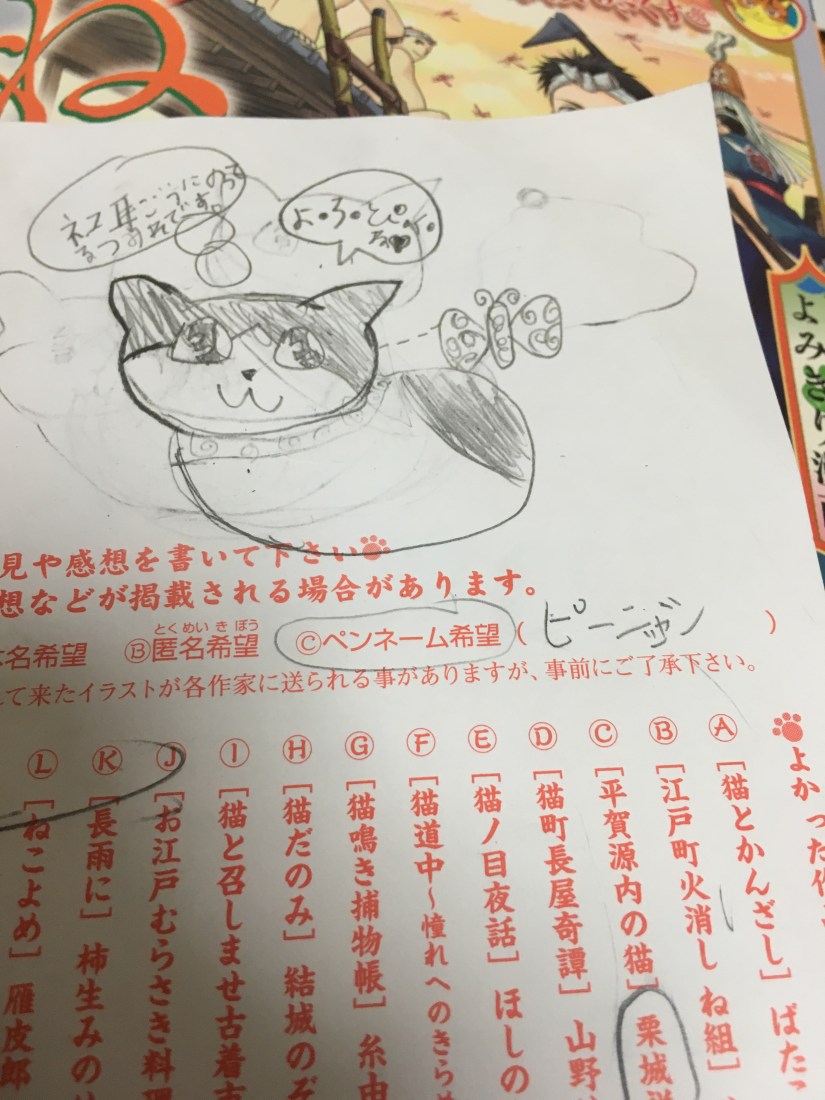 ね
ネコ耳
よ・ろ・
見や感想を書いて下さい
想などが掲載される場合があります。
名希望
Ⓑ匿名希望
とくめいきぼう
Ⓒペンネーム希望(ピーニャン)
て来たイラストが各作家に送られる事がありますが、事前にご了承下さい。
よかった作
Ⓐ[猫とかんざし]ばたこ
Ⓑ[江戸町火消しね組]
Ⓒ[平賀源内の猫]栗城
Ⓓ[猫町長屋奇譚]山野
Ⓔ[猫ノ目夜話]ほしの
Ⓕ[猫道中~憧れへのきらめ
Ⓖ[猫鳴き捕物帳]糸由
Ⓗ[猫だのみ]結城のぞ
Ⓘ[猫と召しませ古着市
Ⓙ[お江戸むらさき料理
Ⓚ[長雨に]柿生みの
Ⓛ[ねこよめ]雁皮郎
よみきり